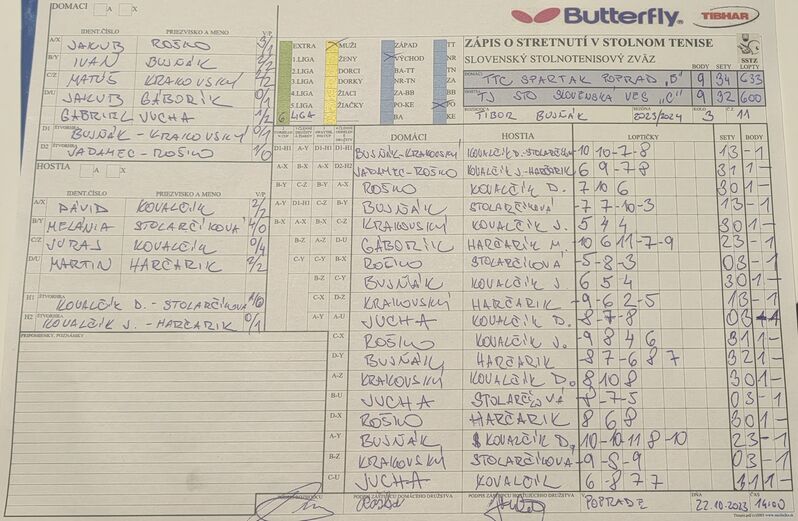 DOMÁCI A X
Butterfly TIBHAR
IDENT.ČÍSLO PRIEZVISKO A MENO V/P
A/X JAKUB ROŠKO 3/1
B/Y IVAN BUJŇÁK 2/2
C/Z MATÚŠ KRAKOVSKÝ 2/2
D/U JAKUB GÁBORÍK 0/1
GABRIEL JUCHA 1/2
D1 ŠTVORHRA BUJŇÁK - KRAKOVSKÝ 0/1
D2 VADAMEC - ROŠKO 1/0
EXTRA MUŽI ZÁPAD TT
1.LIGA ŽENY VÝCHOD NR
2.LIGA DORCI BA-TT TN
3.LIGA DORKY NR-TN ZA
4.LIGA ŽIACI ZA-BB BB
5.LIGA ŽIAČKY PO-KE PO
6 LIGA BA KE
ZÁPIS O STRETNUTÍ V STOLNOM TENISE
SLOVENSKÝ STOLNOTENISOVÝ ZVÄZ SSTZ
DOMÁCI BODY SETY LOPTY
TTC SPARTAK POPRAD "B" 9 34 633
HOSTIA TJ STO SLOVENSKÁ VES "C" 9 32 600
ROZHODCA TIBOR BUJŇÁK SEZÓNA 2023/2024 KOLO 3 11
HOSTIA A X
IDENT.ČÍSLO PRIEZVISKO A MENO V/P
A/X DÁVID KOVALČÍK 2/2
B/Y MELÁNIA STOLARČÍKOVÁ 4/0
C/Z JURAJ KOVALČÍK 0/4
D/U MARTIN HARČARIK 2/2
H1 ŠTVORHRA KOVALČÍK D. - STOLARČÍKOVÁ 1/0
H2 ŠTVORHRA KOVALČÍK J. - HARČARIK 0/1
PRIPOMIENKY, POZNÁMKY
DOMÁCI HOSTIA LOPTIČKY SETY BODY
D1-H1 A-Y D1-H1 BUJŇÁK-KRAKOVSKÝ KOVALČÍK D.-STOLARČÍK -10 10 -7 -8 1 3 - 1
A-X B-X D2-H2 VADAMEC-ROŠKO KOVALČÍK J.-HARČARIK 6 9 -7 8 3 1 1 -
B-Y C-Z A-X ROŠKO KOVALČÍK D. 7 10 6 3 0 1 -
A-Y D1-H1 C-X B-Y BUJŇÁK STOLARČÍKOVÁ -7 7 -10 -3 1 3 - 1
B-X A-X C-Z KRAKOVSKÝ KOVALČÍK J. 5 4 4 3 0 1 -
B-Z A-Z D-U GÁBORÍK HARČARIK M. -10 6 11 -7 -9 2 3 - 1
C-Y C-Y B-X ROŠKO STOLARČÍKOVÁ -5 -8 -3 0 3 - 1
B-Z C-Y BUJŇÁK KOVALČÍK J. 6 5 4 3 0 1 -
C-X D-Z KRAKOVSKÝ HARČARIK -9 -6 2 -5 1 3 - 1
A-Y A-U JUCHA KOVALČÍK D. -8 -7 -8 0 3 - 1
C-X ROŠKO KOVALČÍK -9 8 4 6 3 1 1 -
D-Y BUJŇÁK HARČARIK -8 7 -6 8 7 3 2 1 -
A-Z KRAKOVSKÝ KOVALČÍK D. 8 10 8 3 0 1 -
B-U JUCHA STOLARČÍKOVÁ -8 -7 -5 0 3 - 1
D-X ROŠKO HARČARIK 8 6 8 3 0 1 -
A-Y BUJŇÁK KOVALČÍK D. 10 -10 -11 8 -10 2 3 - 1
B-Z KRAKOVSKÝ STOLARČÍKOVÁ -9 -8 -9 0 3 - 1
C-U JUCHA KOVALČÍK -6 8 7 7 3 1 1 -
PODPIS ROZHODCU PODPIS ZÁSTUPCU DOMÁCEHO DRUŽSTVA PODPIS ZÁSTUPCU HOSŤUJÚCEHO DRUŽSTVA V POPRADE DŇA 22.10.2023 ČAS 14:00